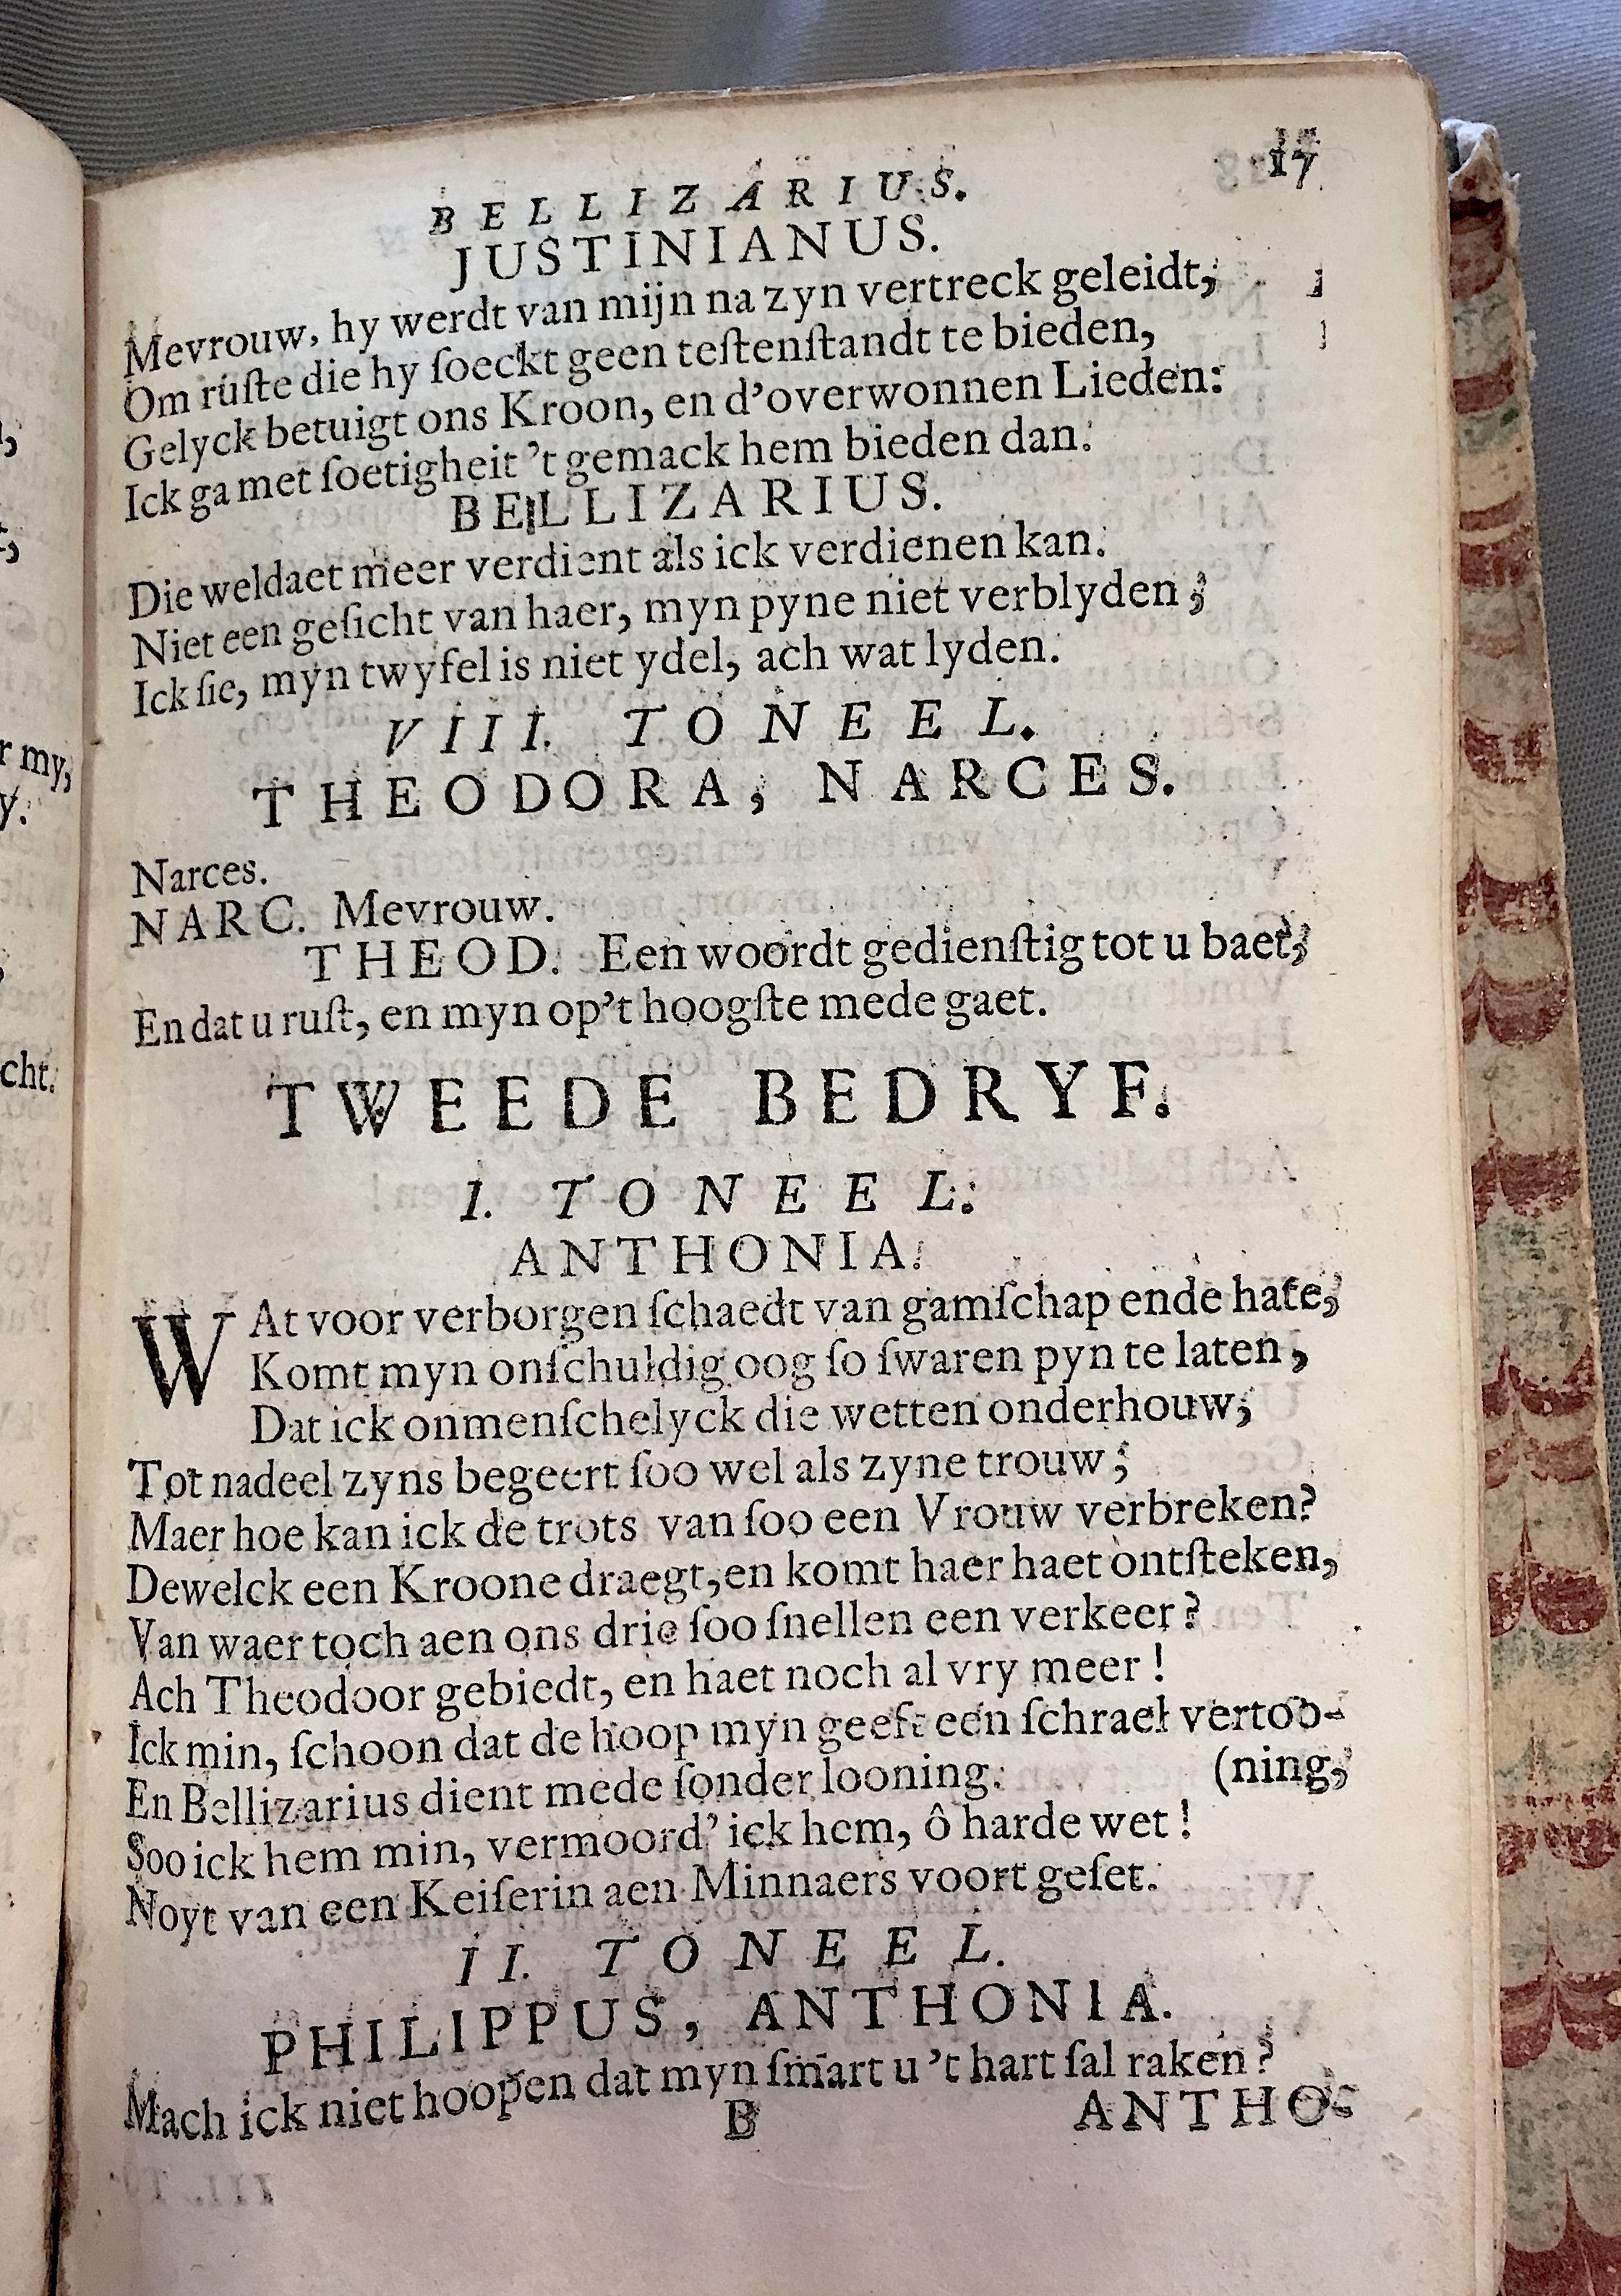 17
BELLIZARIUS.
JUSTINIANUS.
Mevrouw, hy werdt van mijn na zyn vertreck geleidt,
Om ruſte die hy ſoeckt geen teſtenſtandt te bieden,
Gelyck betuigt ons Kroon, en d'overwonnen Lieden:
Ick ga met ſoetigheit 't gemack hem bieden dan.
BELLIZARIUS.
Die weldaet meer verdient als ick verdienen kan.
Niet een geſicht van haer, myn pyne niet verblyden;
Ick ſie, myn twyfel is niet ydel, ach wat lyden.
VIII. TONEEL.
THEODORA, NARCES.
Narces.
NARC. Mevrouw.
THEOD. Een woordt gedienſtig tot u baet,
En dat u ruſt, en myn op't hoogſte mede gaet.
TWEEDE BEDRYF.
I. TONEEL.
ANTHONIA.
WAt voor verborgen ſchaedt van gamſchap ende hate,
Komt myn onſchuldig oog ſo ſwaren pyn te laten,
Dat ick onmenſchelyck die wetten onderhouw;
Tot nadeel zyns begeert ſoo wel als zyne trouw;
Maer hoe kan ick de trots van ſoo een Vrouw verbreken?
Dewelck een Kroone draegt, en komt haer haet ontſteken,
Van waer toch aen ons drie ſoo ſnellen een verkeer?
Ach Theodoor gebiedt, en haet noch al vry meer!
Ick min, ſchoon dat de hoop myn geeft een ſchrael vertoo-
En Bellizarius dient mede ſonder looning. (ning,
Soo ick hem min, vermoord' ick hem, ô harde wet!
Noyt van een Keiſerin aen Minnaers voort geſet.
II. TONEEL.
PHILIPPUS, ANTHONIA.
Mach ick niet hoopen dat myn ſmart u 't hart ſal raken?
B ANTHO-
r my,
y.
cht.